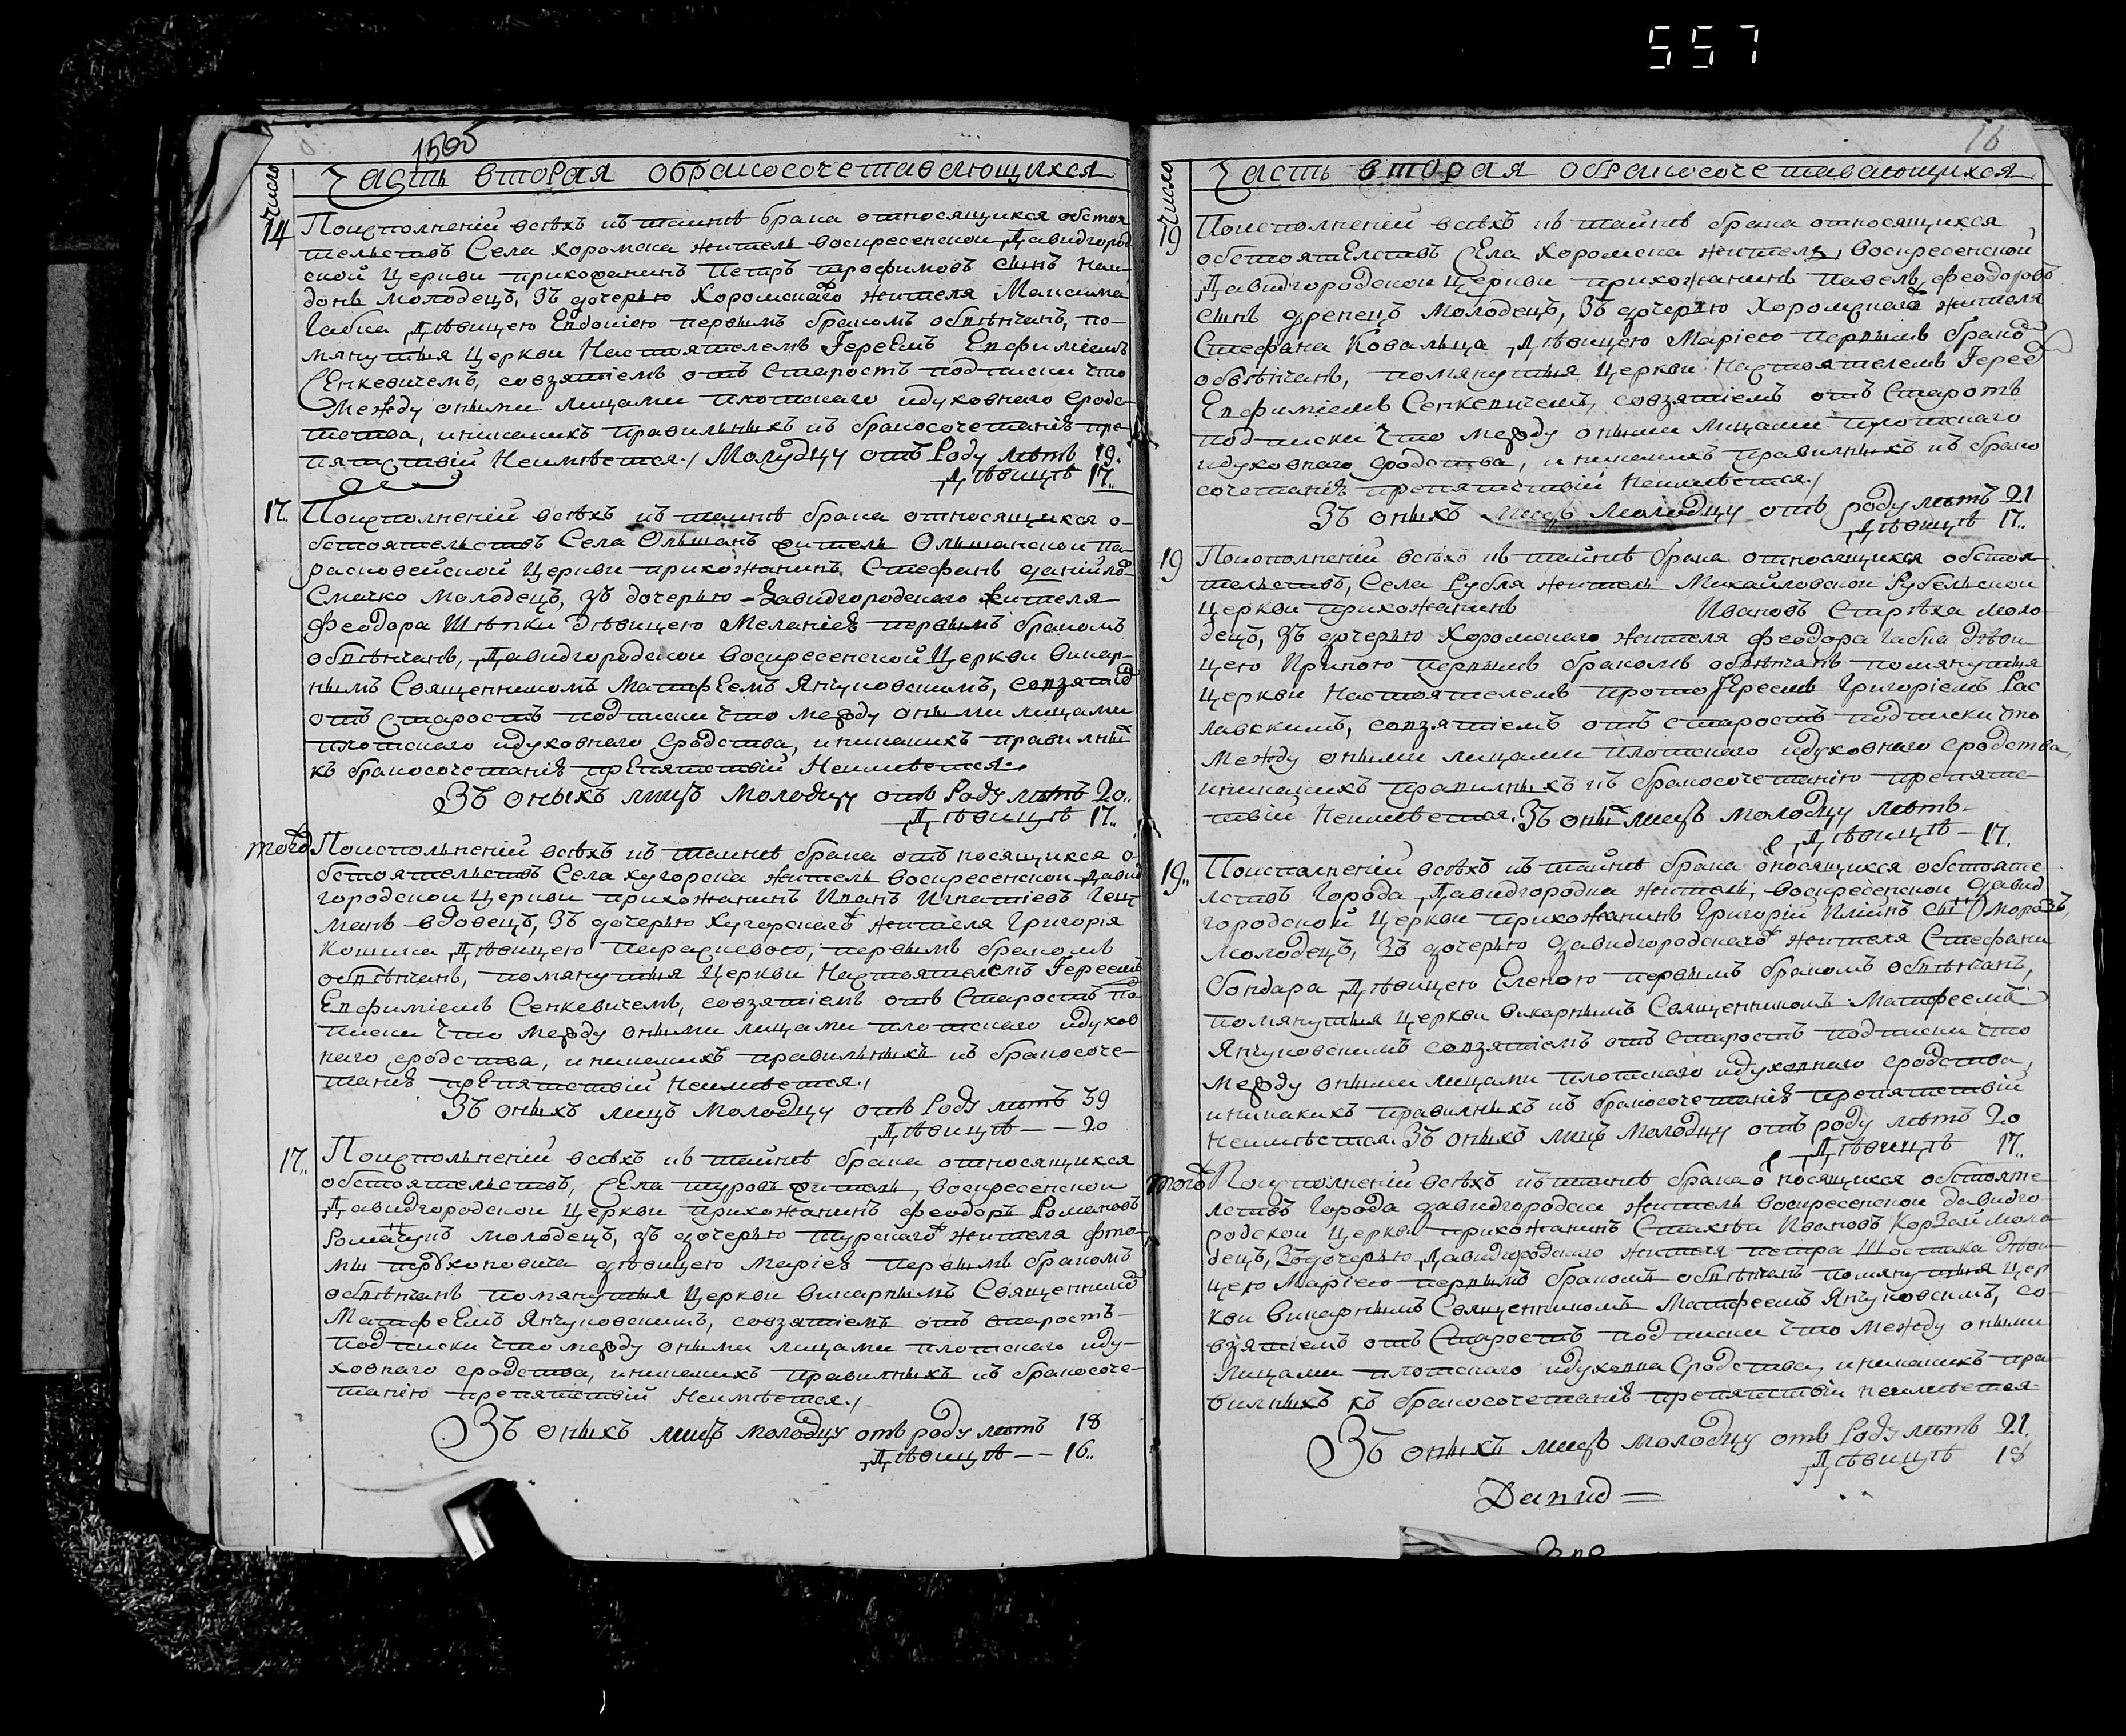 557
1565
Число
Часть вторая обракосочетавающихся
14 Поисполненій всѣхъ къ таинѣ брака относящихся обстоя
тельствъ Села хоромска житель воскресенской Давидгород
ской Церкви прихожанинъ Петръ трофимовъ сынъ
донъ молодецъ, Зъ дочерью Хоромскаго жителя Максима
Габка Дѣвицею Евдокіею первымъ бракомъ обвѣнчанъ, по-
мянутыя Церкви Настоятелемъ Іереемъ Евфиміемъ
Сенкевичемъ, совзятіемъ отъ Старостъ подписки что
Между оными лицами плотскаго идуховнаго Сродс-
тства, иникакихъ правильныхъ къ бракосочетанію пре-
пятствій Неимѣется./ Молодцу отъ Роду лѣтъ 19.
Дѣвицѣ 17..
17.. Поисполненій всѣхъ къ таинѣ брака относящихся о-
бстоятельствъ Села Ольшанъ житель Ольшанской па-
расковейской Церкви прихожанинъ Стефанъ даніило
Смычко молодецъ, зъ дочерью Давидгородскаго жителя
Феодора Шпѣтки дѣвицею Меланіею первымъ бракомъ
обвѣнчанъ, Давидгородской воскресенской Церкви викар-
нымъ Священникомъ Матфеемъ Янчуковскимъ, совзятіе
отъ старостъ подписки что между оными лицами
плотскаго идуховнаго Сродства, иникакихъ правилных
къ бракосочетанію препятствій Неимѣется.
Зъ оныхъ лицъ Молодцу отъ Роду лѣтъ 20..
Дѣвицѣ 17..
того Поисполненій всѣхъ къ таинѣ брака относящихся о-
бстоятельствъ Села хугорска житель воскресенской Давид
городской Церкви прихожанинъ Иванъ Игнатіевъ Гец
манъ вдовецъ, Зъ дочерью Хугорскаго жителя Григорія
Кошика Дѣвицею Параскевою, первымъ бракомъ
обвѣнчанъ, помянутыя Церкви Настоятелемъ Іереемъ
Евфиміемъ Сенкевичемъ, совзятіемъ отъ Старостъ под
писки что между оными лицами плотскаго идухов
наго сродства, иникакихъ правильныхъ къ бракосоче-
танію препятствій Неимѣется./
Зъ оныхъ лицъ Молодцу отъ Роду лѣтъ 39
Дѣвицѣ -- 20
17.. Поисполненій всѣхъ къ таинѣ брака относящихся
обстоятельствъ, Села туровъ житель, воскресенской
Давидгородской Церкви прихожанинъ Феодоръ Романовъ
молодецъ, зъ дочерью турскаго жителя фто-
мы дѣвицею Маріею первымъ бракомъ
обвѣнчанъ помянутыя Церкви викарнымъ Священнико
Матфеемъ Янчуковскимъ, совзятіемъ отъ старостъ-
подписки что между оными лицами плотскаго иду-
ховнаго сродства, иникакихъ правилныхъ къ бракосоче-
танію препятствій Неимѣется./
Зъ оныхъ лицъ молодцу отъ роду лѣтъ 18
Дѣвицѣ -- 16..
16
Число
Часть вторая обракосочетавающихся
19 Поисполненій всѣхъ къ таинѣ брака относящихся
обстоятелствъ Села Хоромска жителя, Воскресенской
Давидгородской Церкви прихожанинъ павелъ феодоровъ
сынъ Грепецъ Молодецъ, Зъ дочерью Хоромскаго жителя
Стефана Ковальца Дѣвицею Маріею первымъ брако
обвѣнчанъ, помянутыя Церкви Настоятелемъ Іерее
Евфиміемъ Сенкевичемъ, совзятіемъ отъ Старостъ
подписки что между оными лицами плотскаго
идуховнаго сродства, иникакихъ правилныхъ къ брако
сочетанію препятствій Неимѣется./
Зъ оныхъ лицъ молодцу отъ роду лѣтъ 21
Дѣвицѣ 17..
19 Поисполненій всѣхъ къ таинѣ брака относящихся обстоя-
тельствъ, Села Рубля житель Михайловской Рубельской
Церкви прихожанинъ Ивановъ Старѣха моло
децъ, Зъ дочерью Хоромскаго жителя феодора Габка дѣви
цею Ириною первымъ бракомъ обвѣнчанъ помянутыя
Церкви Настоятелемъ протоІереемъ Григоріемъ Рас
лавскимъ, совзятіемъ отъ старостъ подписки что
Между оными лицами плотскаго идуховнаго сродства,
иникакихъ правилныхъ къ бракосочетанію препятс-
твій Неимѣется. Зъ оных лицъ молодцу лѣтъ-
Дѣвицѣ - 17.
19.. Поисполненій всѣхъ къ таинѣ брака оносящихся обстояте
лствъ Города Давидгородка житель, воскресенской Давид
городской Церкви прихожанинъ Григорій Илійнъ сын Морозъ,
Молодецъ, Зъ дочерью давидгородскаго жителя Стефана
Бондара Дѣвицею Еленою первымъ бракомъ обвѣнчанъ,
помянутыя Церкви викарнымъ Священникомъ Матфеемъ
Янчуковскимъ совзятіемъ отъ Старостъ подписки что
между оными лицами плотскаго идуховнаго сродства,
иникакихъ правилныхъ къ бракосочетанію препятствій
Неимѣется. Зъ оныхъ лицъ Молодцу отъ роду лѣтъ 20
Дѣвицѣ 17..
того Поисполненій всѣхъ къ таинѣ брака оносящихся обстояте
лствъ Города давидгородка житель воскресенской Давидго-
родской Церкви прихожанинъ Стахѣй Ивановъ Коржай моло
децъ, Зъ дочерью Давидгородскаго жителя петра Шостака дѣви
цею Маріею первымъ бракомъ обвѣнчанъ помянутыя Цер
кви Викарнымъ Священникомъ Матфеемъ Янчуковскимъ, со-
взятіемъ отъ Старостъ подписки что Между оными
Лицами плотскаго идуховна Сродства, иникакихъ пра
вилныхъ къ бракосочетанію препятствій неимѣется
Зъ оныхъ лицъ молодцу отъ Роду лѣтъ 21.
Дѣвицѣ 18
Давид =